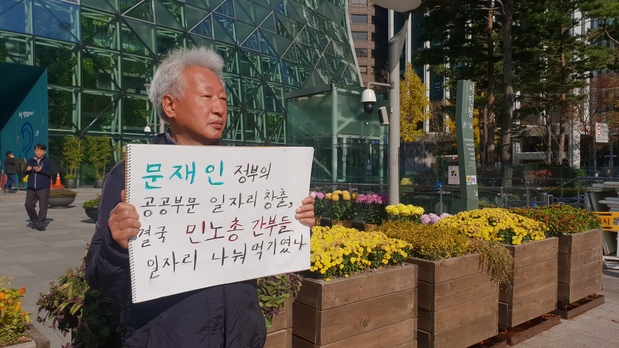 문재인 정부의
공공부문 일자리 창출,
결국 민노총 간부들
일자리 나눠먹기였나